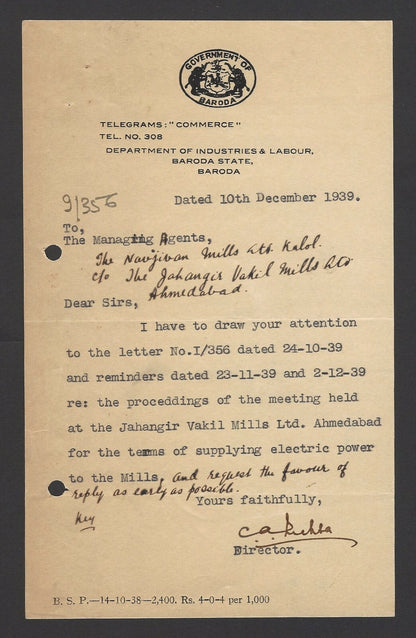 GOVERNMENT OF
BARODA
TELEGRAMS: "COMMERCE"
TEL. NO. 308
DEPARTMENT OF INDUSTRIES & LABOUR,
BARODA STATE,
BARODA
Dated 10th December 1939.
9/356
To,
The Managing Agents,
The Navjivan Mills Ltd. Kalol.
c/o The Jahangir Vakil Mills Ltd
Ahmedabad.
Dear Sirs,
I have to draw your attention
to the letter No.I/356 dated 24-10-39
and reminders dated 23-11-39 and 2-12-39
re: the proceddings of the meeting held
at the Jahangir Vakil Mills Ltd. Ahmedabad
for the terms of supplying electric power
to the Mills, and request the favour of
reply as early as possible.
Yours faithfully,
Director.
B. S. P.—14-10-38—2,400. Rs. 4-0-4 per 1,000